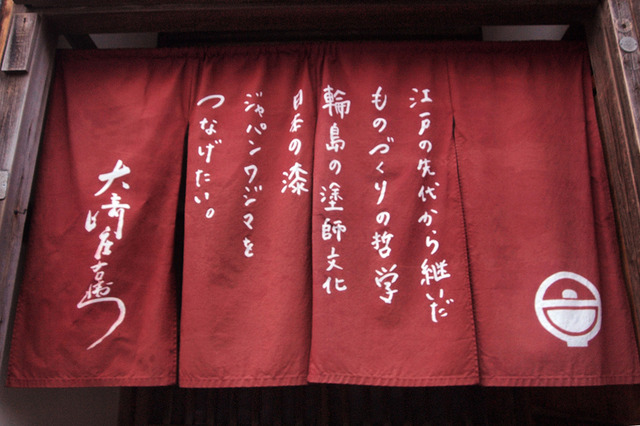 江戸の先代から継いだ
ものづくりの哲学
輪島の塗師文化
日本の漆
ジャパンワジマを
つなげたい。
大崎庄右衛门